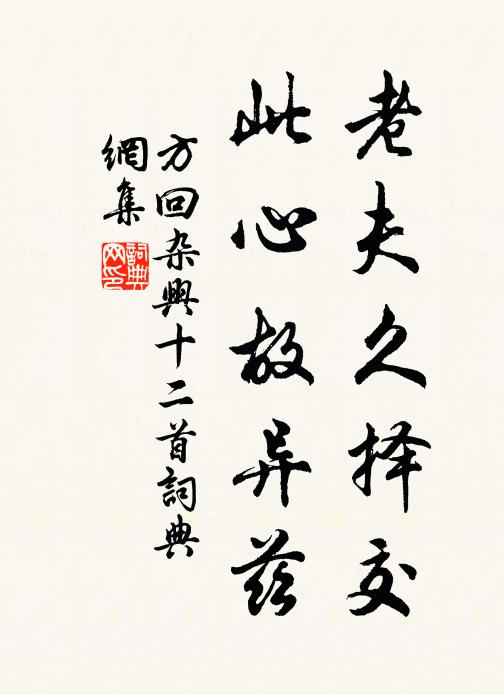 老夫久择交
此心故异兹
方回杂興十二首詞典
網集
詞典
网印